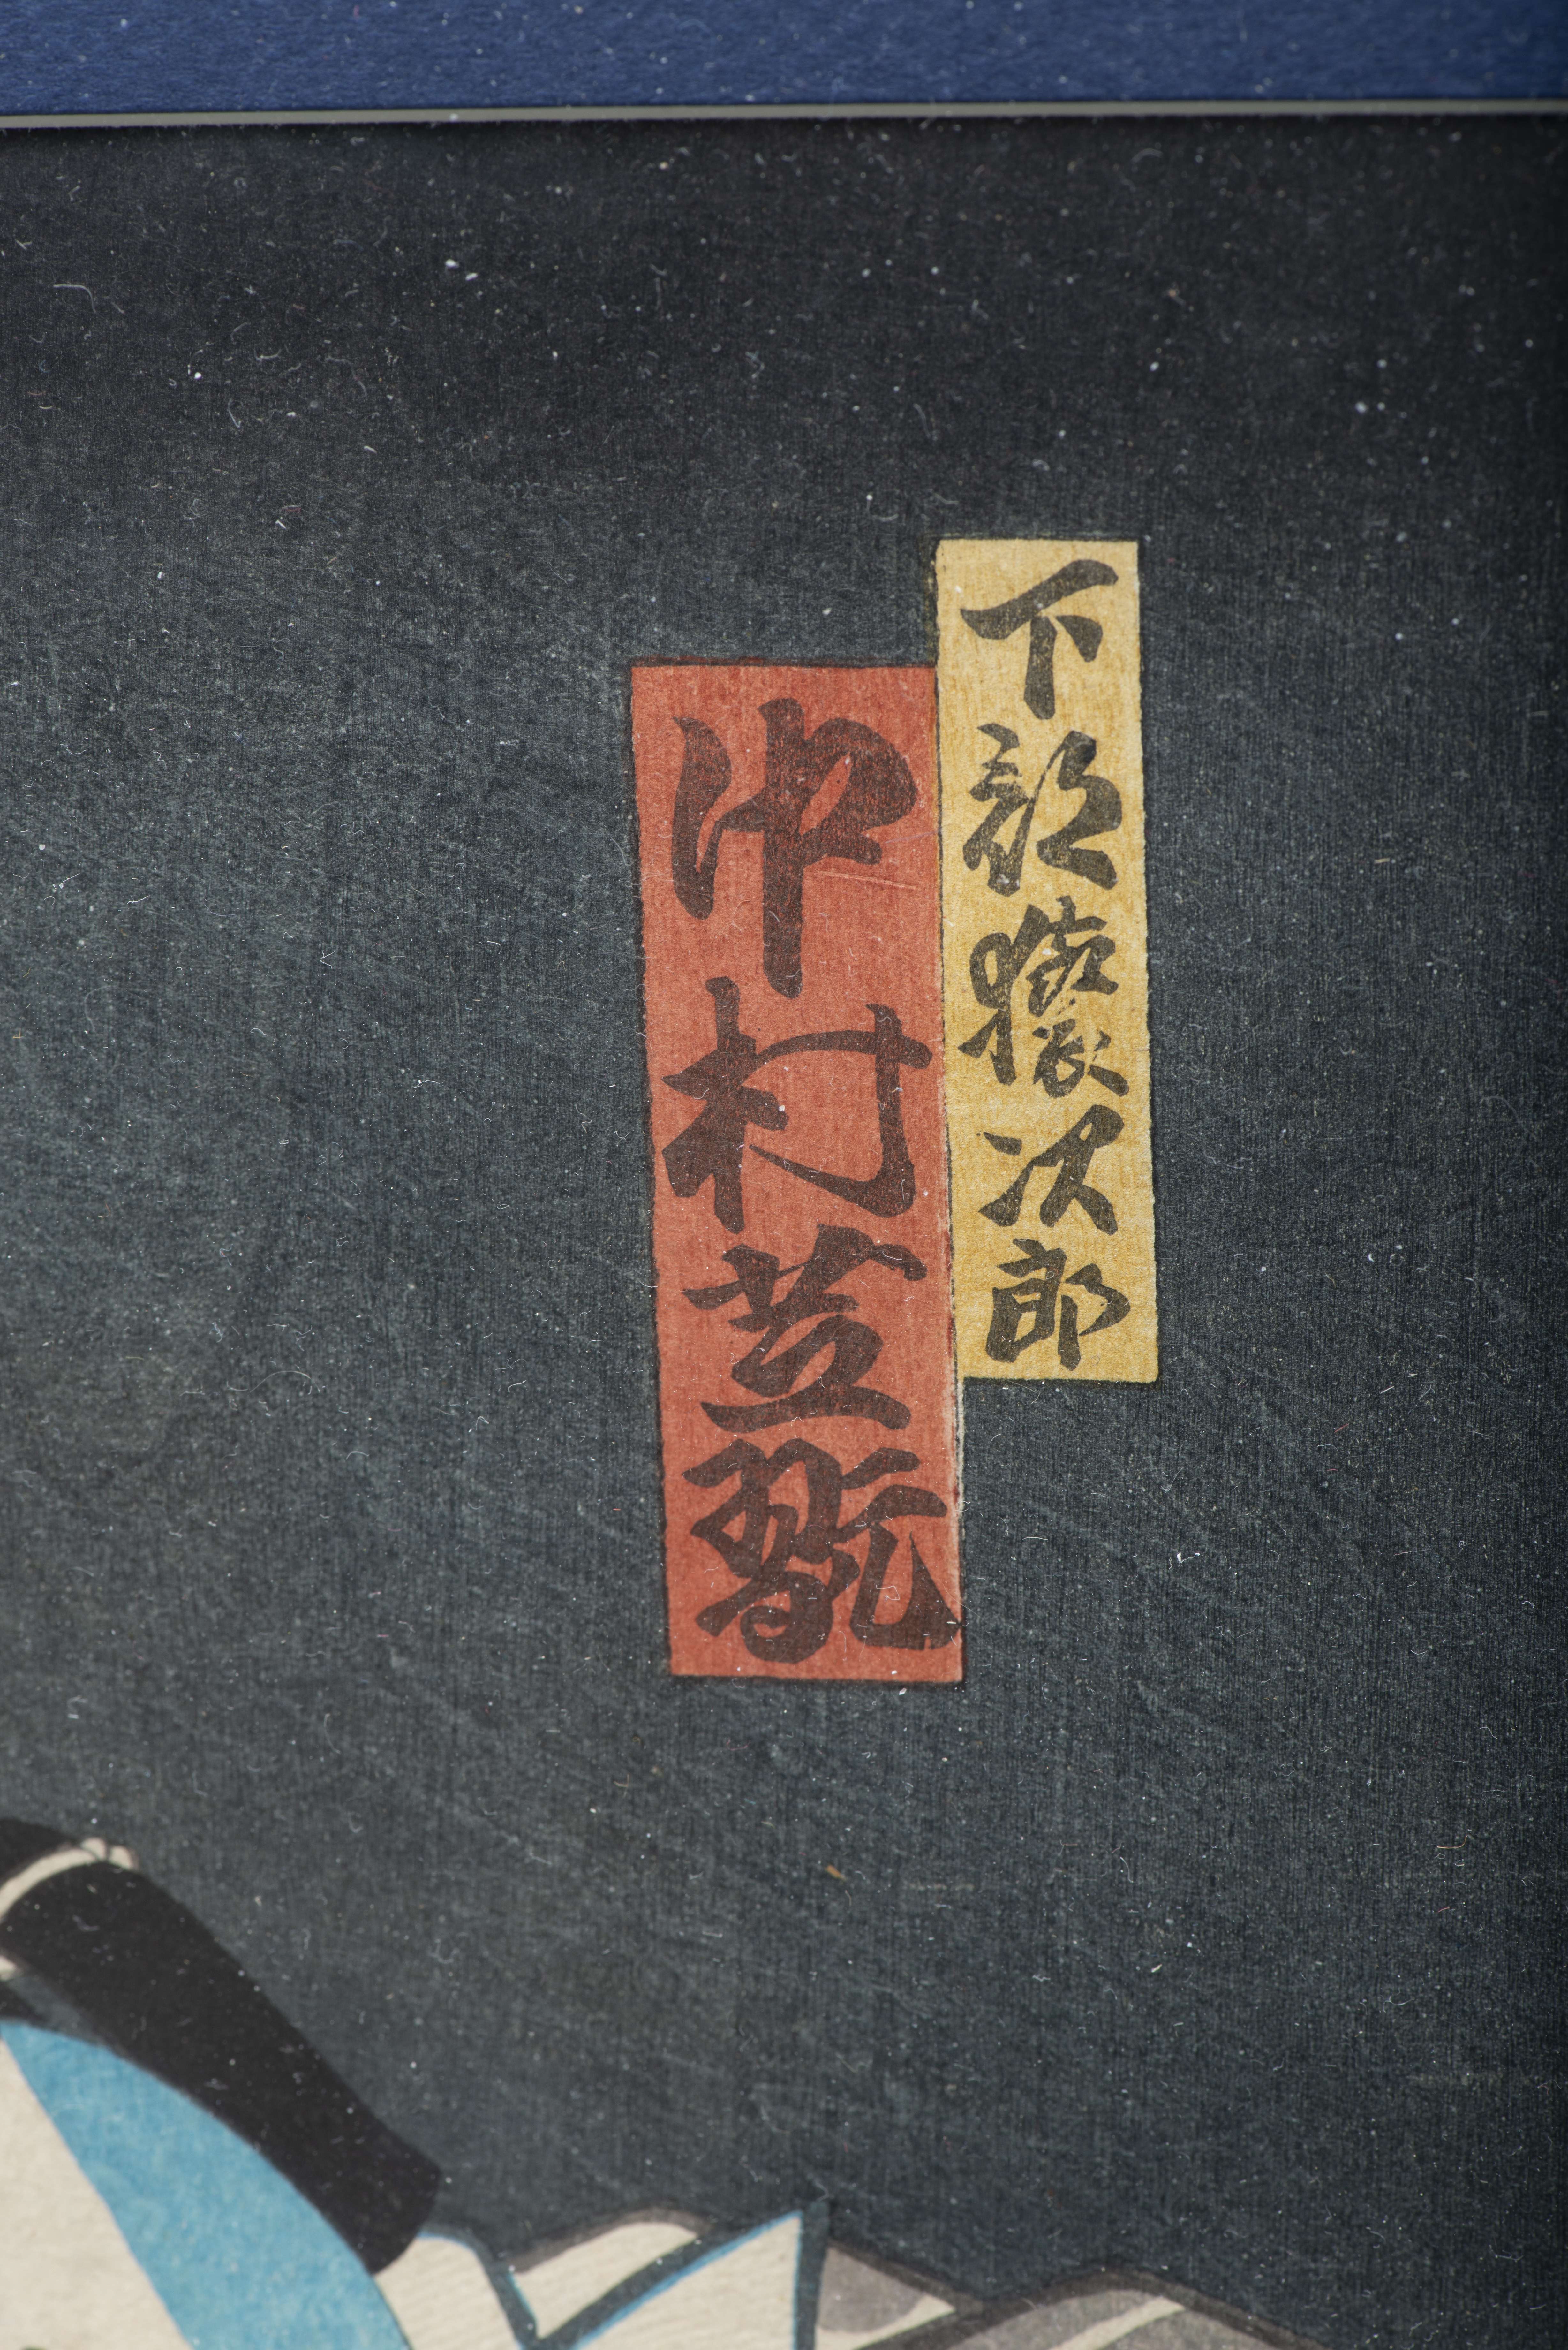 下部猿次郎
中村芝翫